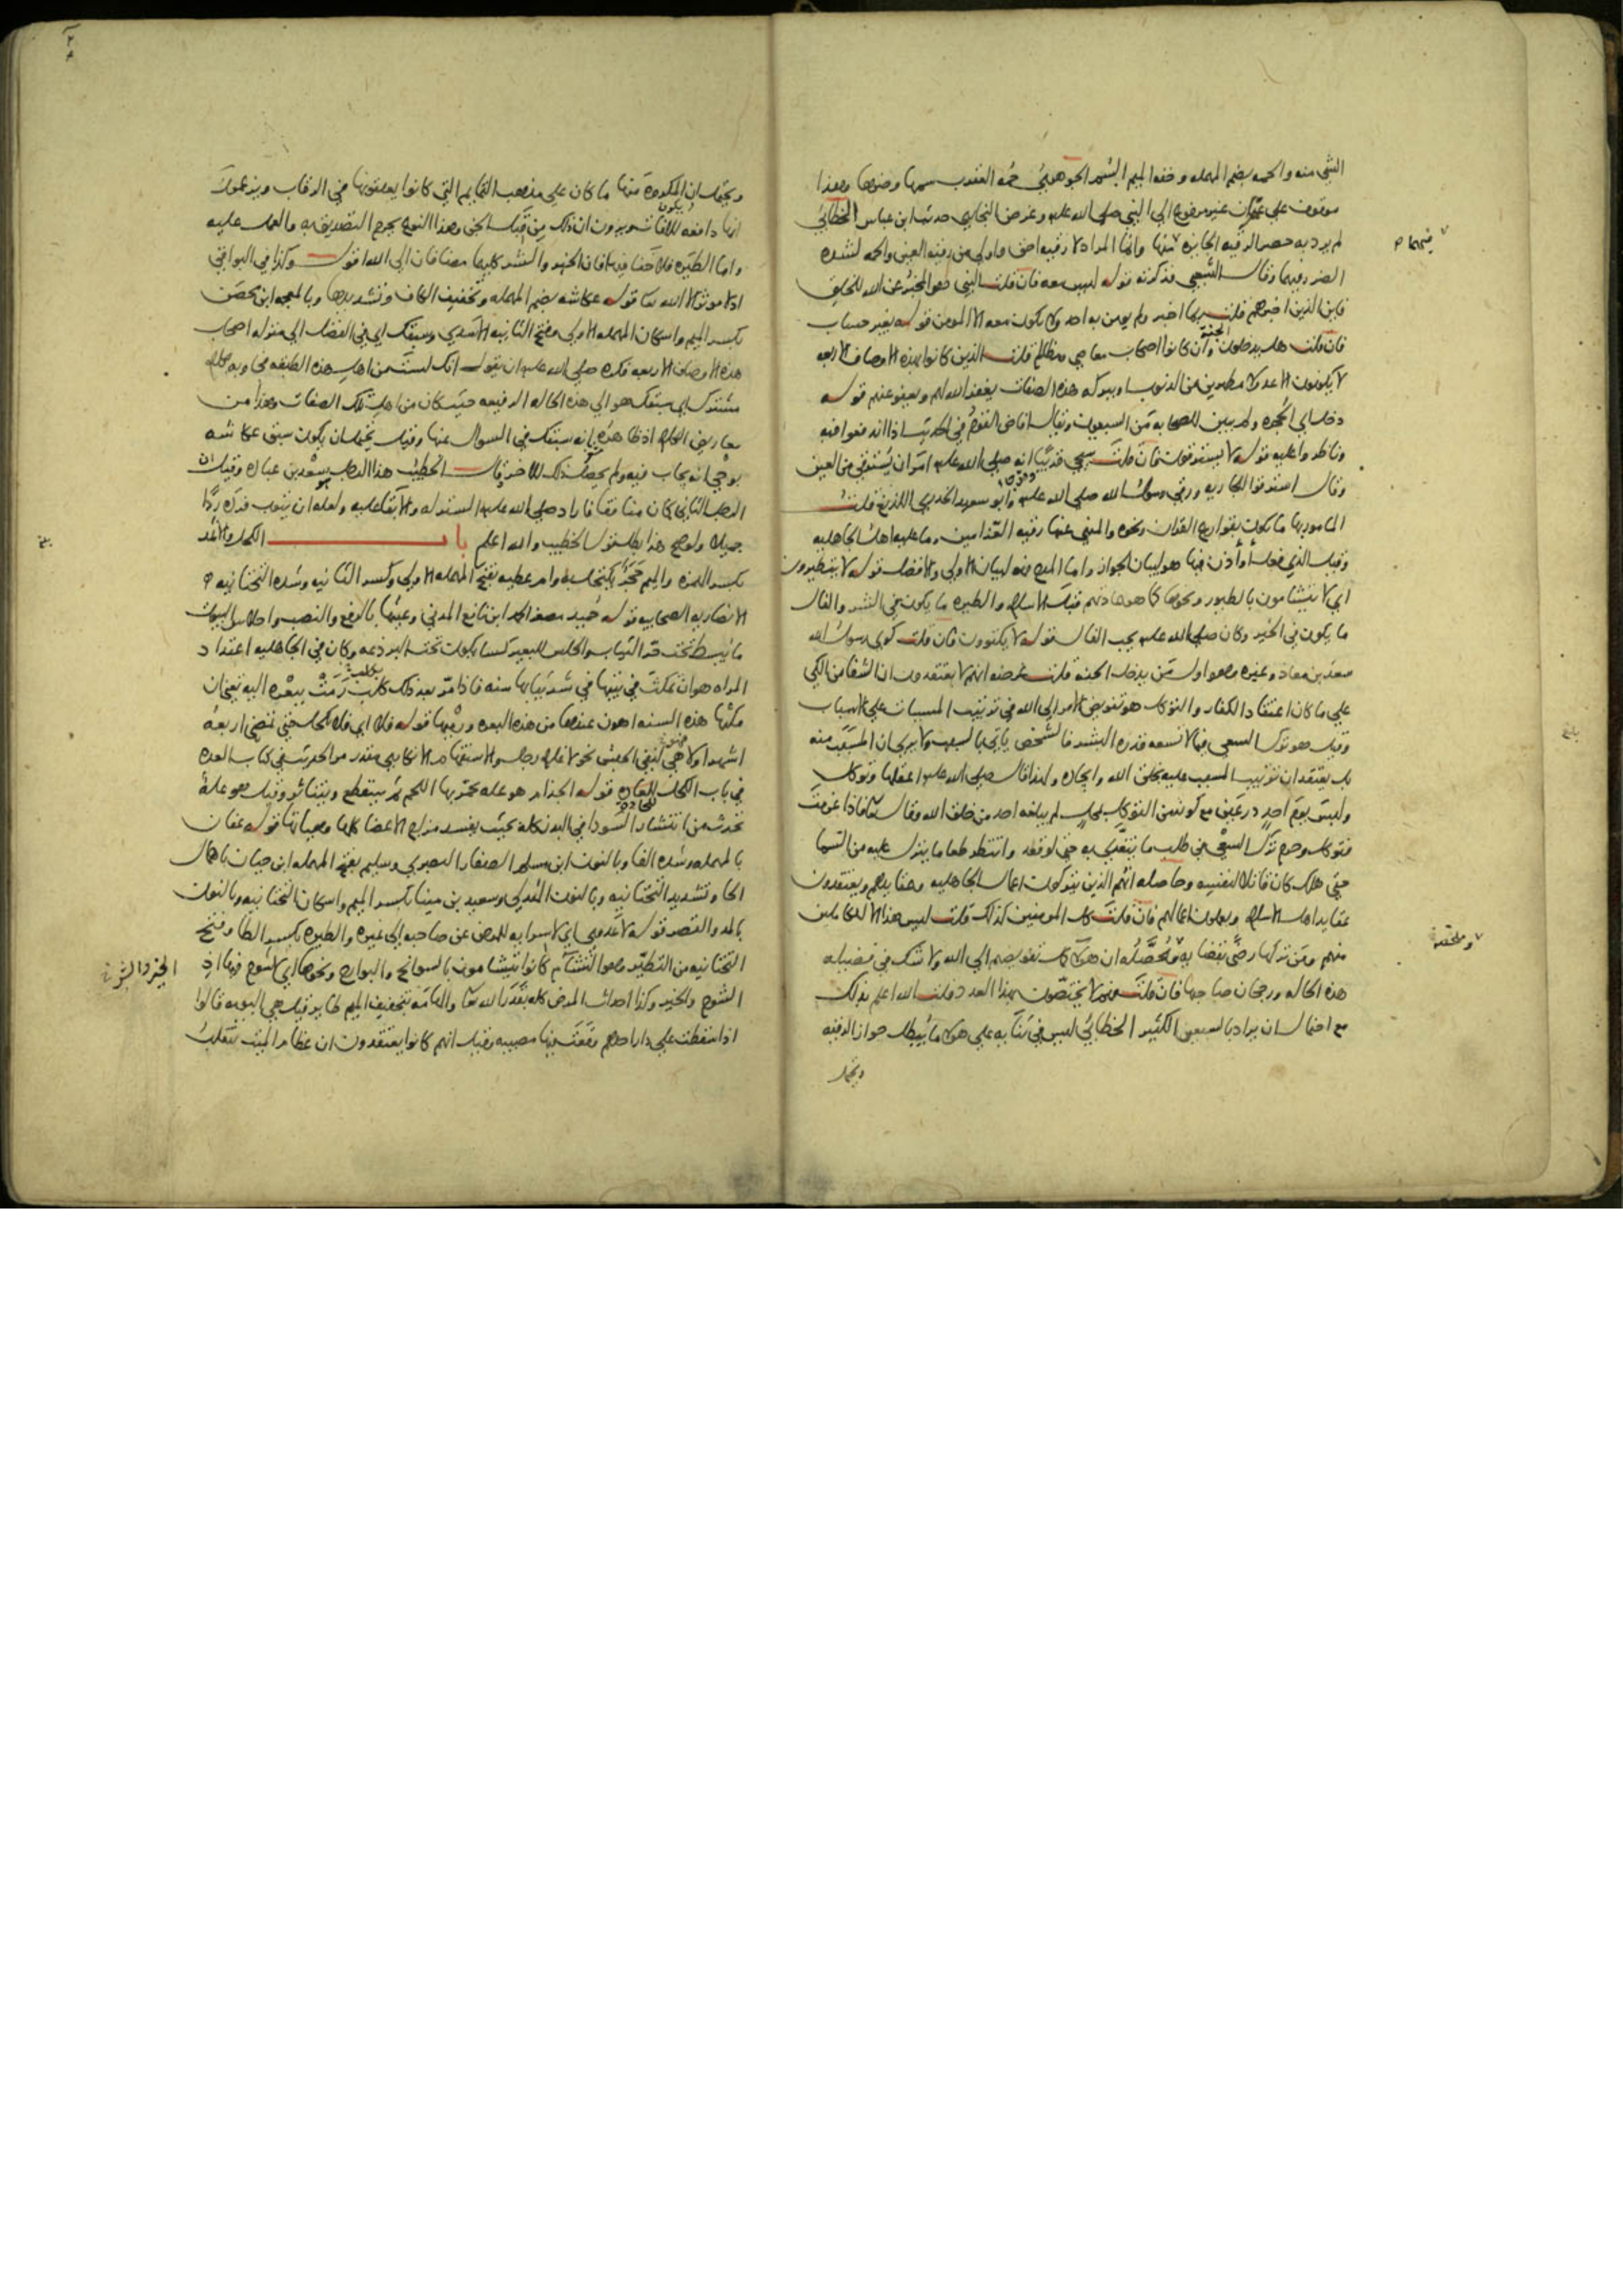 الشي منه والحمه بضم المهمله وخفه الميم السُم الجوهريُّ حُمَه العقرب سمها وضرها وهذا
موقوف على عمران غير مرفوع الى النبي صلى الله عليه وغرض البخاري حديث ابن عباس الخطابيُّ
لم يرد به حصر الرقيه الجايزه فيهما وانما المراد لا رقيه احق واولى من رقيه العين والحمه لشده
الضرر فيهما وقال الشعبي فذكرته قوله ليس معه فان قلت النبي هو المخبرُ عن الله للخلق
فاين الذين اخبرهم قلت ربما اخبر ولم يومن به احد ولا يكون معه الا المومن قوله بغير حساب
فان قلت هل يدخلون الجنة وان كانوا اصحاب معاصي ومظالم قلت الذين كانوا بهذه الاوصاف الاربعه
لا يكونون الا عدولا مطهرين من الذنوب او ببركه هذه الصفات يغفر الله لهم ويعفو عنهم قوله
دخل اي الحجره ولم يبين للصحابه من السبعون ويقال افاض القومُ في الحديث اذا اندفعوا فيه
وناظروا عليه قوله لا يسترقون فان قلت سيجي قريبًا انه صلى الله عليه امر ان يُسترقى من العين
وقال استرقوا للجاريه ورقى رسول الله صلى الله عليه ورقى ابو سعيد الخدري اللديغ قلت
المامور بها ما يكون بقوارع القران ونحوه والمنهي عنها رقيه العزّامين وما عليه اهل الجاهليه
وقيل الذي فعله أو أذن فيها هو لبيان الجواز واما المدح فهو لبيان الاولى والافضل قوله لا يتطيرون
اي لا يتشامون بالطيور ونحوها كما هو عادتهم قبل الاسلام والطيره ما يكون في الشر والفال
ما يكون في الخير وكان صلى الله عليه يحب الفال قوله لا يكتوون فان قلت كوى رسول الله
سعد بن معاذ وغيره وهو اول من يدخل الجنه قلت غرضه انهم لا يعتقدون ان الشفا من الكي
على ما كان اعتقاد الكفار والتوكل هو تفويض الامر الى الله في ترتيب المسببات على الاسباب
وقيل هو ترك السعي فيما لا تسعه قدره البشر فالشخص ياتي بالسبب ولا يرى ان المسبَّب منه
بل يعتقد ان ترتيب المسبب عليه بخلق الله وايجاده ولهذا قال صلى الله عليه اعقلها وتوكل
ولبس يومَ احدٍ درعين مع كونه من التوكل بمحل لم يبلغه احد من خلق الله وقال تعالى فاذا عزمت
فتوكل وحرم ترك السعي في طلب ما يتغذى به حتى لو قعد وانتظر طعاما ينزل عليه من السما
حتى هلك كان قاتلا لنفسه وحاصله انهم الذين يتركون اعمال الجاهليه وعقايدهم ويعتقدون
عقايد اهل الاسلام ويعملون اعمالهم فان قلت كل المومنين كذلك قلت ليس هذا الا للكاملين
منهم ومن تركها رضًى بقضا به ومُحصَّلُه ان هولا كمل تفويضهم الى الله ولا شك في فضيله
هذه الحاله ورجحان صاحبها فان قلت فهم لا يختصّون بهذا العدد قلت الله اعلم بذلك
مع احتمال ان يراد بالسبعين الكثير الخطابيُّ ليس في ثنايه على هولا ما يُبطل جواز الرقيه
ويحتمل
فيهما
وملحقه
ويحتمل ان يكون المكروه منها ما كان على مذهب التمايم التي كانوا يعلقونها في الرقاب ويزعمون
انها دافعه للافات ويرون ان ذلك من قِبَل الجن وهذا النوع يحرم التصديق به والعمل عليه
واما الطيره فلا خفا فيه فان الخير والشر كليهما مضافان الى الله اقول وكذا في البواقي
اذ لا موثر الا الله تعالى قوله عكاشه بضم المهمله وتخفيف الكاف وتشديدها وبالمعجمه ابن محصن
بكسر الميم واسكان المهمله الاولى وفتح الثانيه الاسدي وسبقك اي في الفضل الى منزله اصحاب
هذه الاوصاف الاربعه فكره صلى الله عليه ان يقول انك لست من اهل هذه الطبقه فجاوبه بكلام
مشترك اي سبقك هو الى هذه الحاله الرفيعه حيث كان من اهل تلك الصفات وهذا من
معاريض الكلام اذ ظاهره بانه سبقك في السوال عنها وقيل يحتمل ان يكون سبق عكاشه
بوحي انه يجاب فيه ولم يحصل ذلك للاخر وقال الخطيب هذا الرجل هو سعد بن عباده وقيل ان
الرجل الثاني كان منافقا فاراد صلى الله عليه الستر له والابقا عليه ولعله ان يتوب فردّه ردًّا
جميلا ولو صح هذا بطل قول الخطيب والله اعلم باب الكحل والاثمد
بكسر الهمزه والميم حجرٌ يكتحل به وام عطيه بفتح المهمله الاولى وكسر الثانيه وشده التحتانيه
الانصاريه الصحابيه قوله حُميد مصغر الحمد ابن نافع المدني وعينُها بالرفع والنصب واحلاس البيوت
ما يُبسط تحت حرّ الثياب والحلس للبعير كسا يكون تحت البرذعه وكان في الجاهليه اعتداد
المراه هو ان تمكث في بيتها في شر ثيابها سنه فاذا مرّ بعد ذلك كلبٌ رمت ببعره اليه يعني ان
مكثها هذه السنه اهون عندها من هذه البعره ورميها قوله فلا اي فلا تكحل حتى تمضي اربعه
اشهر او لا هي لنفي الجنس نحو لا غلام رجل والاستفهام الانكاري مقدر مر الحديث في كتاب العده
في باب الكحل للحاده قوله الجذام هو عله يحمر بها اللحم ثم يتقطع ويتناثر وقيل هو علةٌ
تحدث من انتشار السودا في البدن كله بحيث يفسد مزاج الاعضا كلها وهياتها قوله عفان
بالمهمله وشده الفا وبالنون ابن مسلم الصفار البصري وسليم بفتح المهمله ابن حيان باهمال
الحا وتشديد التحتانيه وبالنون الهُذلي وسعيد بن مينا بكسر الميم واسكان التحتانيه وبالنون
بالمد والقصر قوله لا عدوى اي لا سرايه للمرض عن صاحبه الى غيره والطيره بكسر الطا وفتح
التحتانيه من التطيّر وهو التشاّم كانوا يتشامون بالسوانح والبوارح ونحوها اي لا شوم فيها اذ
الشوم والخير وكذا احداث المرض كله بقدر الله تعالى والهامّه بتخفيف الميم طاير وقيل هي البومه قالوا
اذا سقطت على دار احدهم وقعت فيها مصيبه وقيل انهم كانوا يعتقدون ان عظام الميت تنقلبُ
الخير والشر